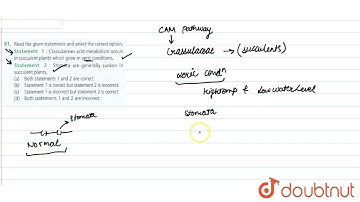 81. Read the given statements and select the correct option.
Statement 1 : Crassulacean acid metabolism occurs
in succulent plants which grow in xeric conditions.
Statement 2 : Stomata are generally sunken in
succulent plants.
(a) Both statements 1 and 2 are correct.
(b) Statement 1 is correct but statement 2 is incorrect.
(c) Statement 1 is incorrect but statement 2 is correct.
(d) Both statements 1 and 2 are incorrect.
stomata
Normal
CAM pathway
Crassulaceae → (succulents)
Xeric condn
High temp & Low water level
stomata
doubtnut